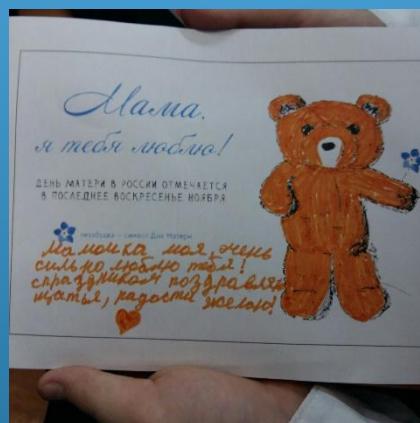 Мама,
я тебя люблю!
ДЕНЬ МАТЕРИ В РОССИИ ОТМЕЧАЕТСЯ
В ПОСЛЕДНЕЕ ВОСКРЕСЕНЬЕ НОЯБРЯ
незабудка – символ Дня Матери
мамочка моя, очень
сильно люблю тебя!
спраздником поздравля
щатья, радости желаю!